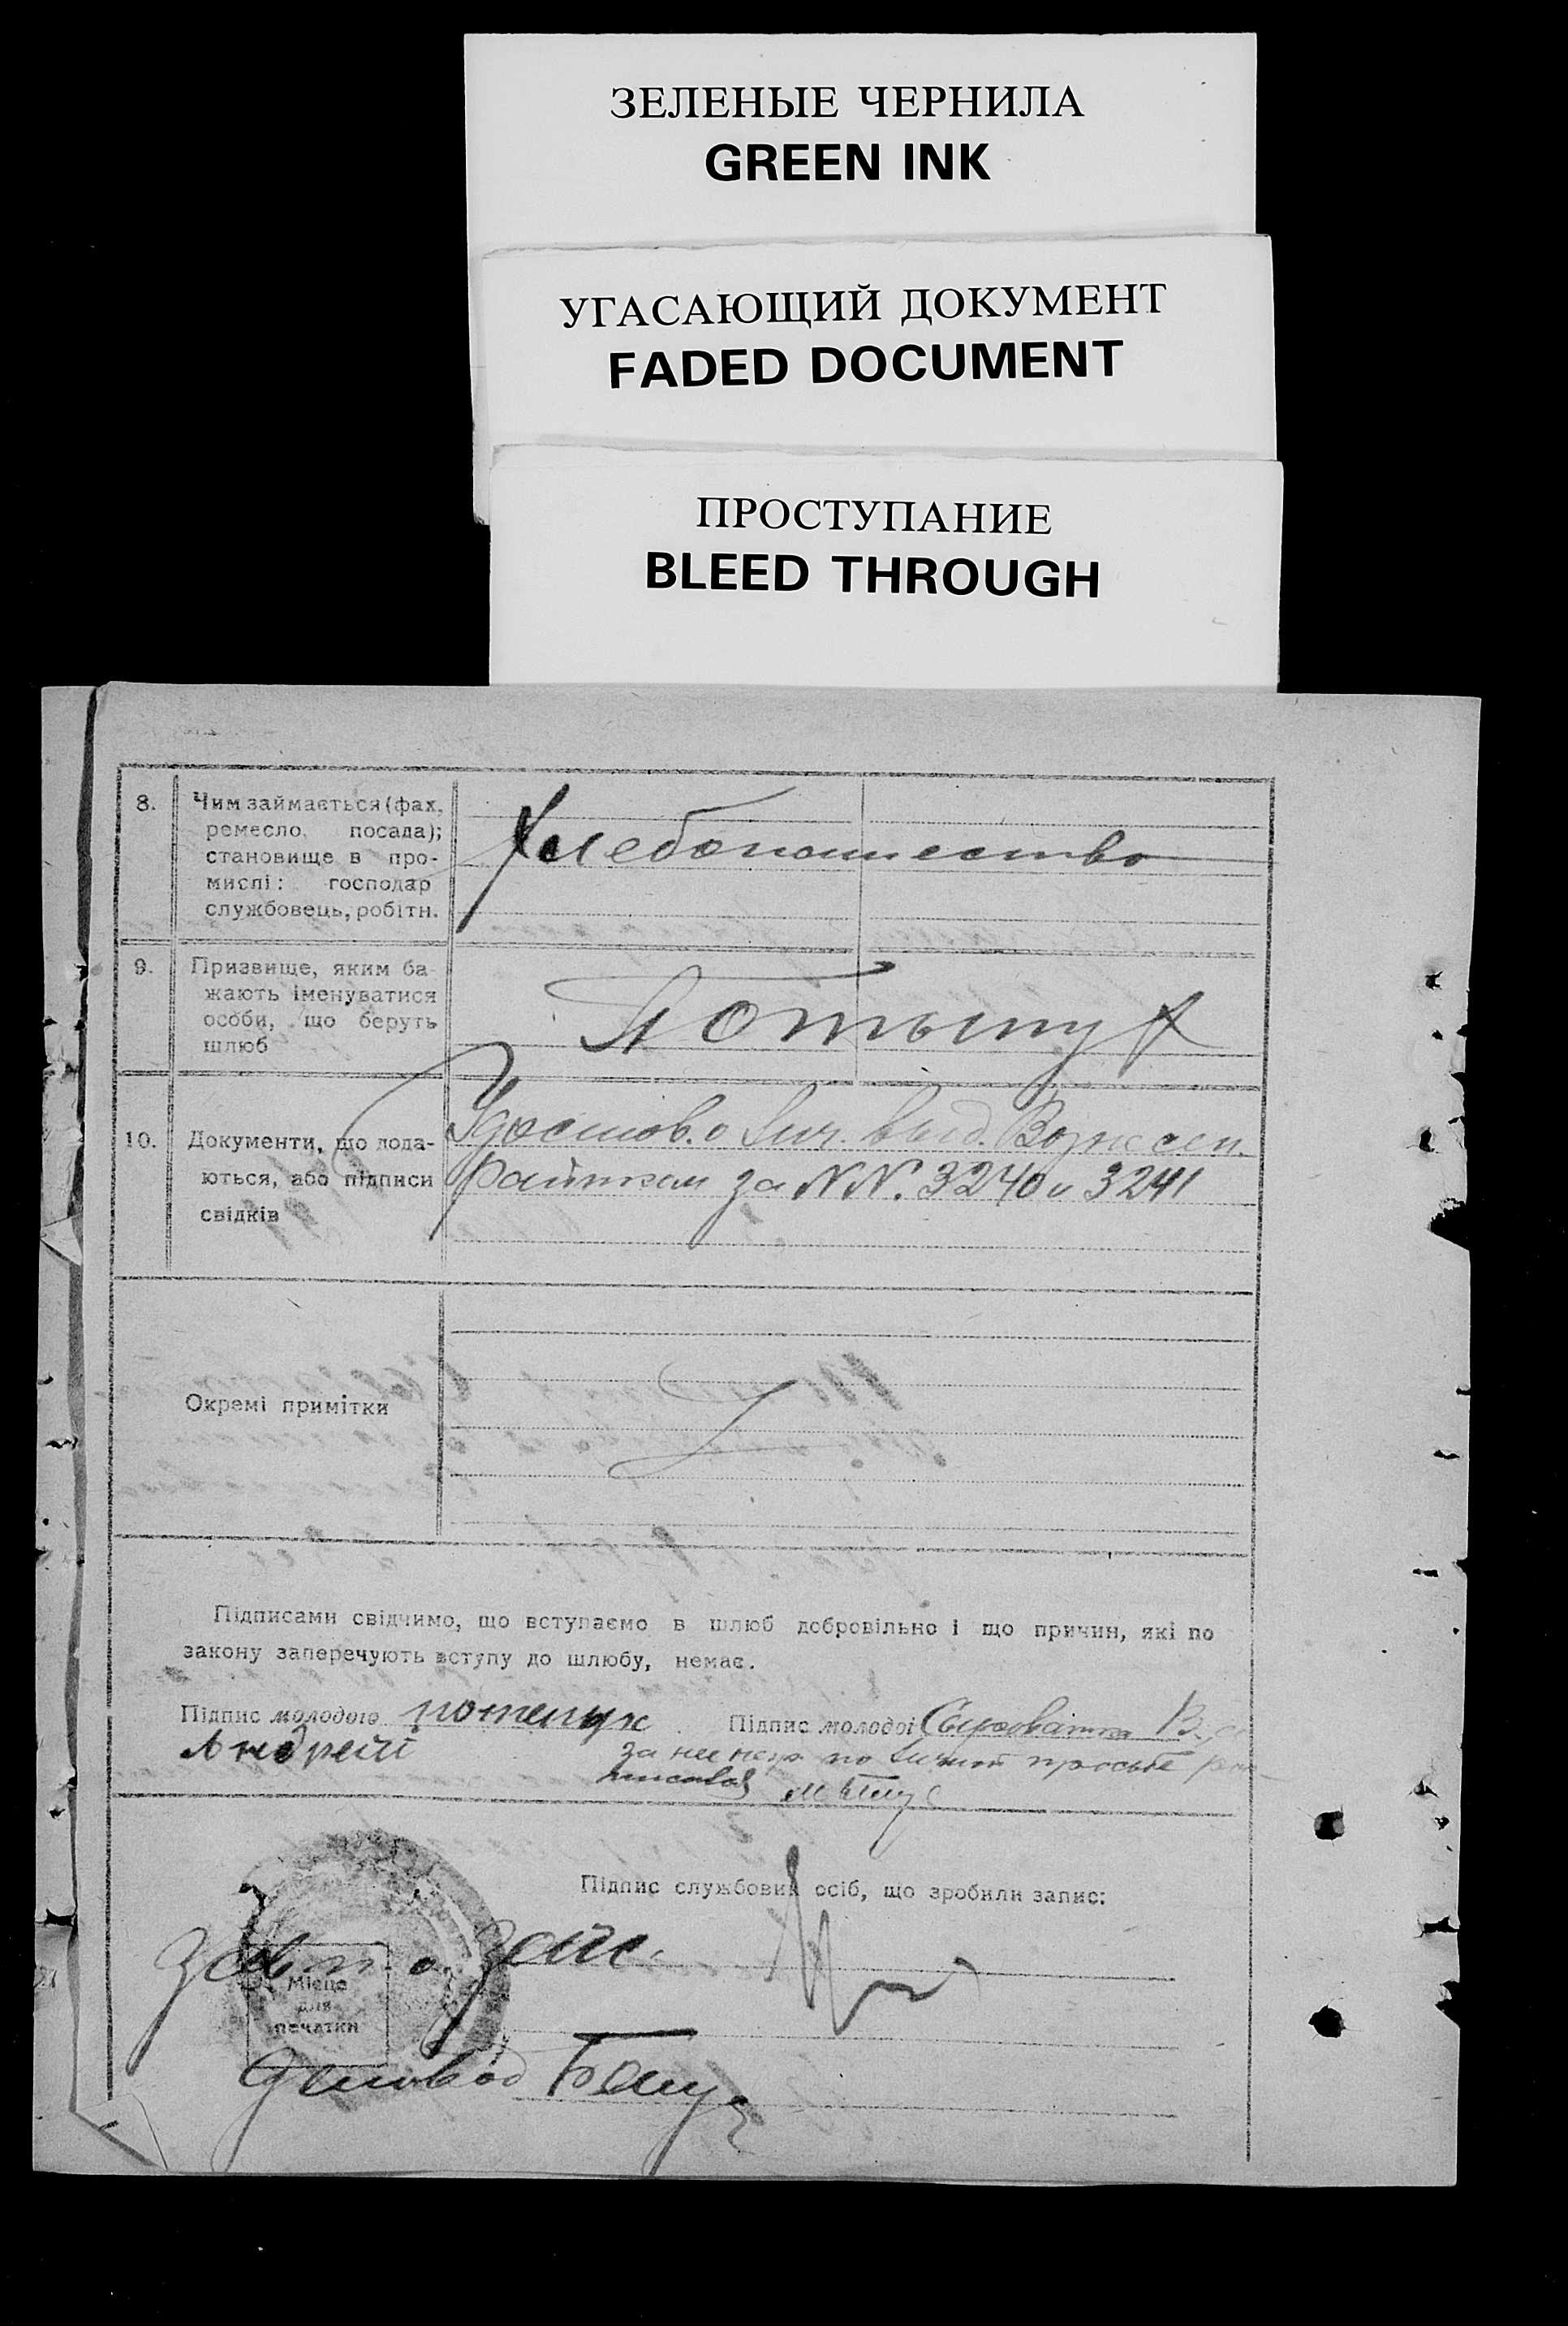 ЗЕЛЕНЫЕ ЧЕРНИЛА
GREEN INK
УГАСАЮЩИЙ ДОКУМЕНТ
FADED DOCUMENT
ПРОСТУПАНИЕ
BLEED THROUGH
8. Чим займається (фах,
ремесло, посада);
становище в про-
мислі: господар
службовець, робітн.
Хлебопашество
9. Призвище, яким ба-
жають іменуватися
особи, що беруть
шлюб
Потыпух
10. Документи, що пода-
ються, або підписи
свідків
Удостов. о лич. выд. Вознесен.
райтком за NN. 3240 и 3241
Окремі примітки
Підписами свідчимо, що вступаємо в шлюб добровільно і що причин, які по
закону заперечують вступу до шлюбу, немає.
Підпис молодого потепух Підпис молодоі Сыроватка В.
Андрей за нее негр по личной просьбе рас
писался
Підпис службових осіб, що зробили запис:
Зав. п. о Загс.
Місце
для
печатки
Діловод